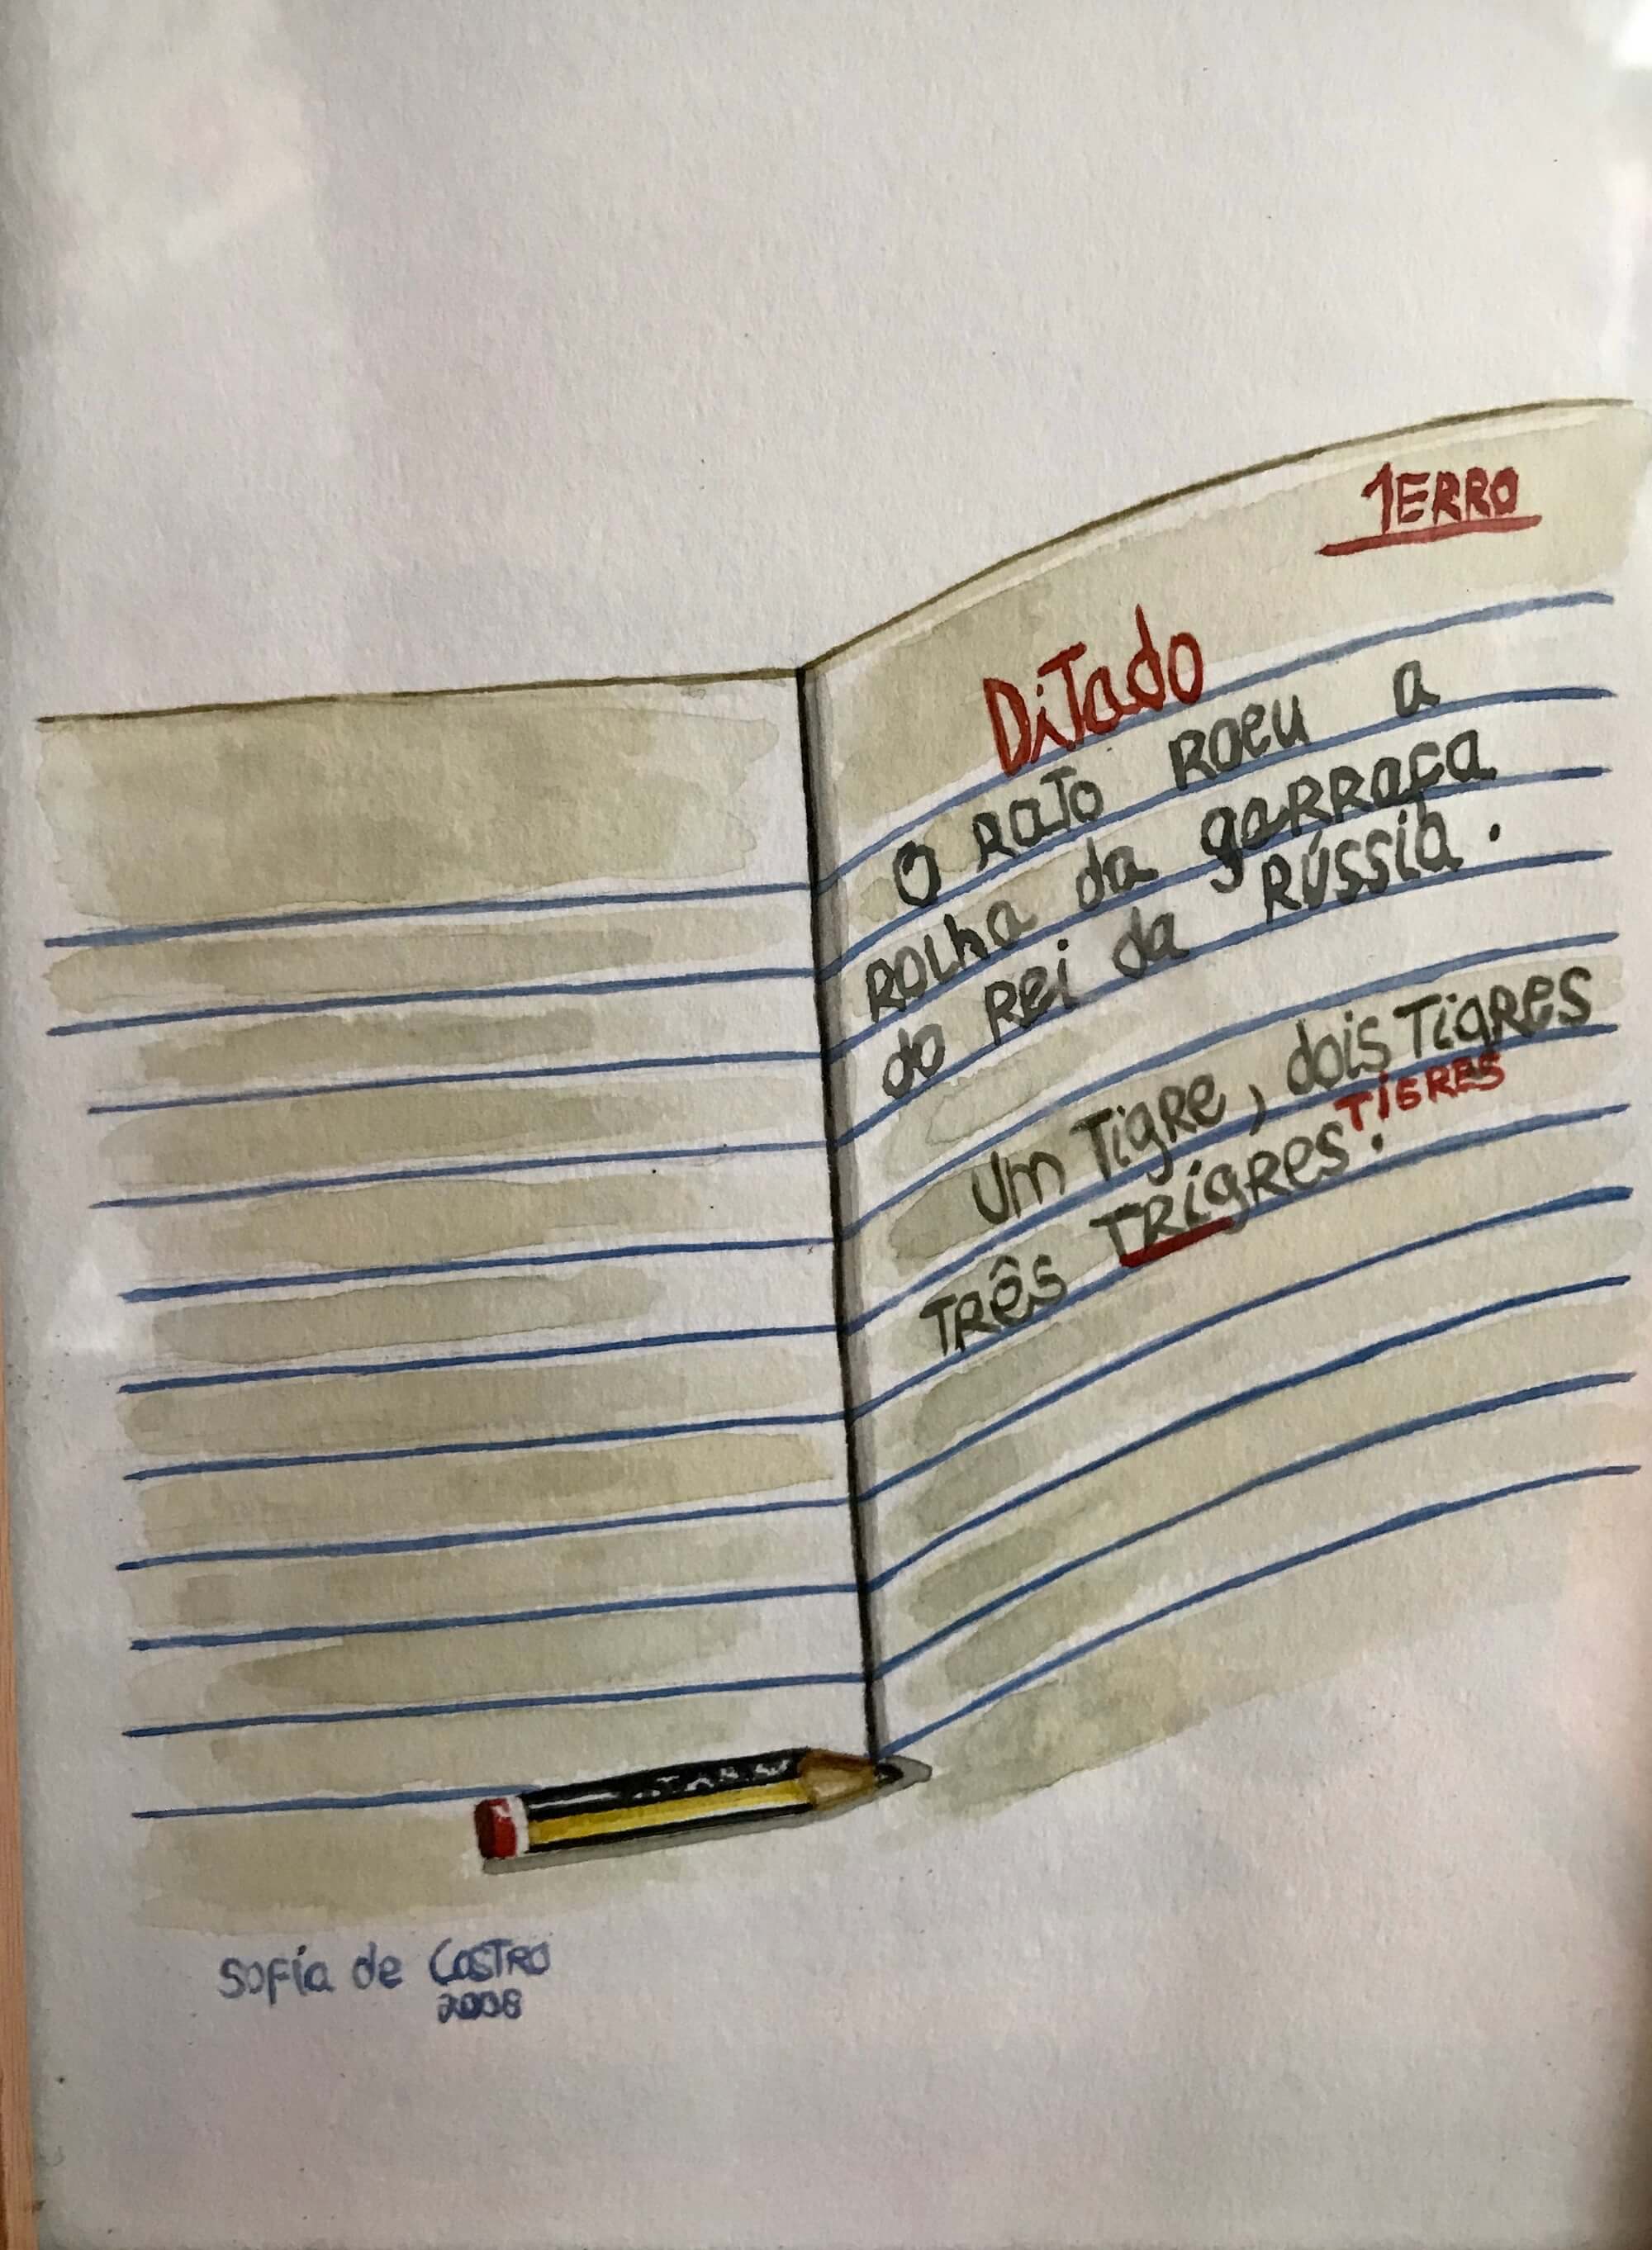 1ERRO
DiTado
O RaTo Roeu a
Rolha da gaRRafa
do Rei da RÚssia.
Um TigRe, dois TigRes
TIGRES
TRês TRigRes.
Sofia de CaSTRO
2008